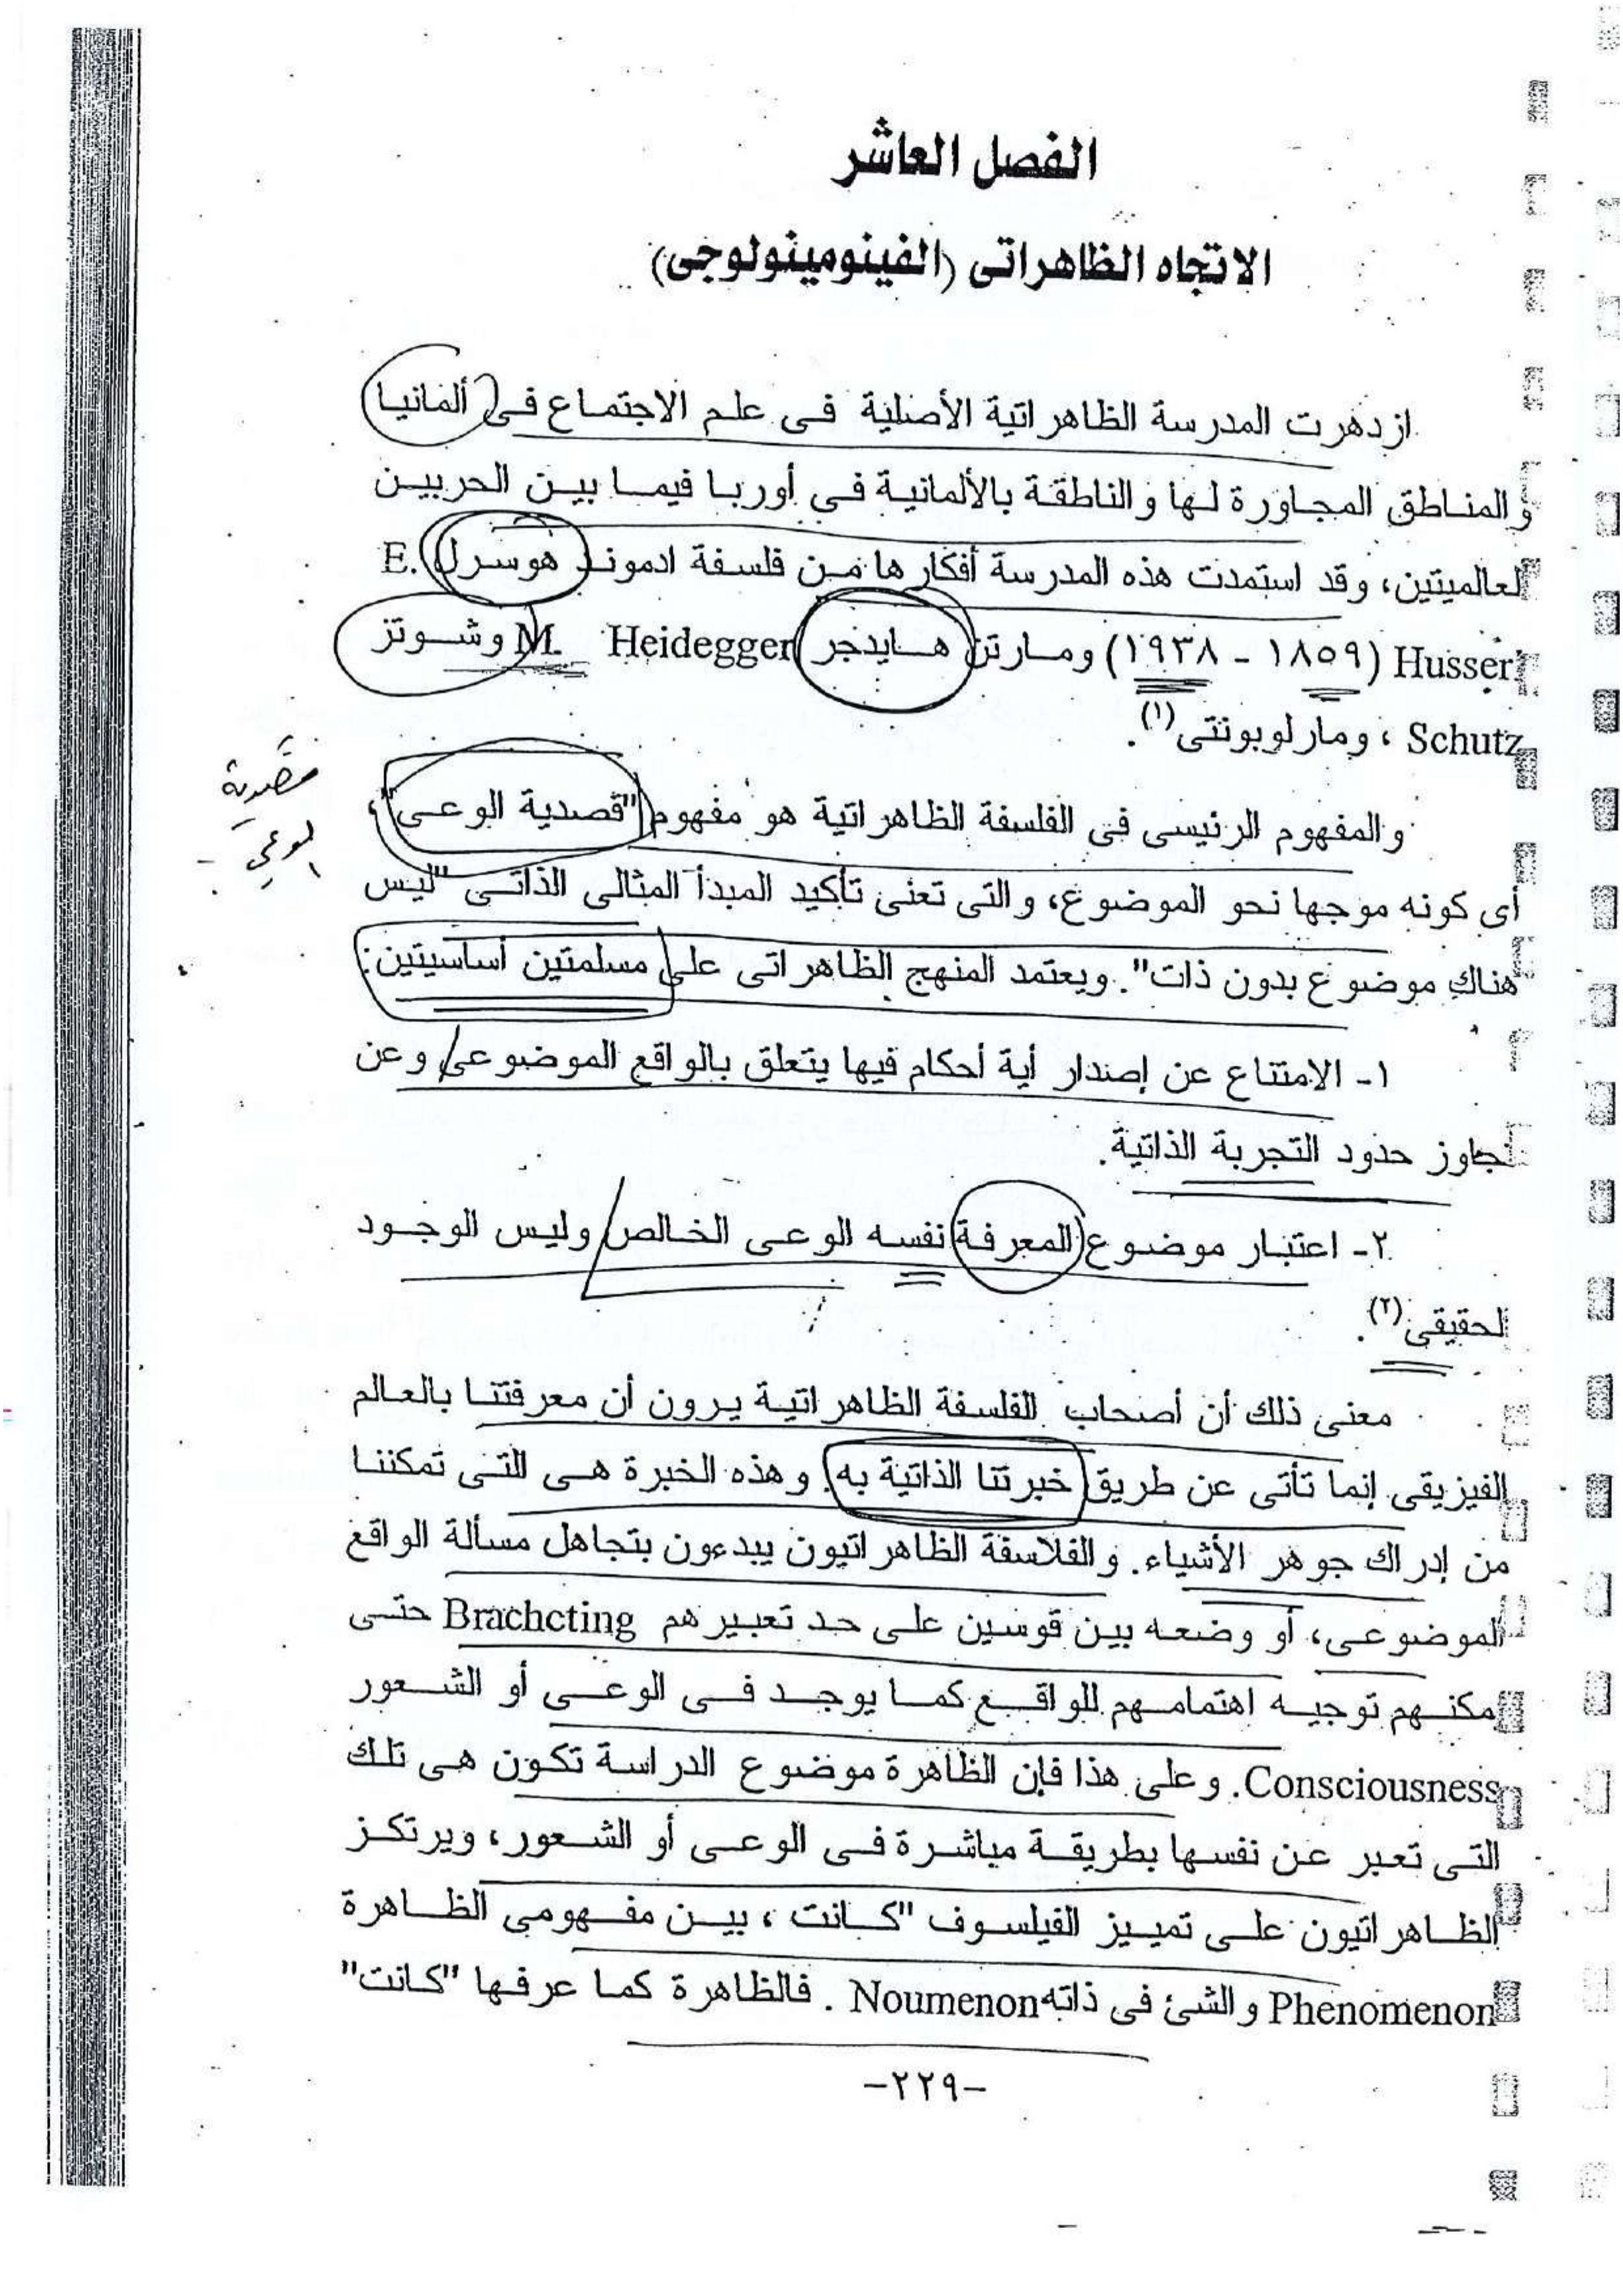 الفصل العاشر
الاتجاه الظاهراتى (الفينومينولوجى)
ازدهرت المدرسة الظاهراتية الأصلية فى علم الاجتماع فى ألمانيا
والمناطق المجاورة لها والناطقة بالألمانية في أوربا فيما بين الحربين
العالميتين، وقد استمدت هذه المدرسة أفكارها من فلسفة ادموند هوسرل E.
Husserl (١٨٥٩ - ١٩٣٨) ومارتن هايدجر M. Heidegger وشوتز
Schutz ، ومارلوبونتى(١).
والمفهوم الرئيسى فى الفلسفة الظاهراتية هو مفهوم "قصدية الوعى"،
أى كونه موجها نحو الموضوع، والتى تعنى تأكيد المبدأ المثالى الذاتى "ليس
هناك موضوع بدون ذات". ويعتمد المنهج الظاهراتى على مسلمتين أساسيتين:
قصدية
الوعي
١- الامتناع عن إصدار أية أحكام فيها يتعلق بالواقع الموضوعى وعن
تجاوز حدود التجربة الذاتية.
٢- اعتبار موضوع المعرفة نفسه الوعى الخالص وليس الوجود
الحقيقى(٢).
معنى ذلك أن أصحاب الفلسفة الظاهراتية يرون أن معرفتنا بالعالم
الفيزيقى إنما تأتى عن طريق خبرتنا الذاتية به. وهذه الخبرة هى التى تمكننا
من إدراك جوهر الأشياء. والفلاسفة الظاهراتيون يبدءون بتجاهل مسألة الواقع
الموضوعى، أو وضعه بين قوسين على حد تعبيرهم Brachcting حتى
يمكنهم توجيه اهتمامهم للواقع كما يوجد فى الوعى أو الشعور
Consciousness. وعلى هذا فإن الظاهرة موضوع الدراسة تكون هى تلك
التى تعبر عن نفسها بطريقة مباشرة فى الوعى أو الشعور، ويرتكز
الظاهراتيون على تمييز الفيلسوف "كانت ، بين مفهومى الظاهرة
Phenomenon والشئ فى ذاته Noumenon . فالظاهرة كما عرفها "كانت"
-٢٢٩-